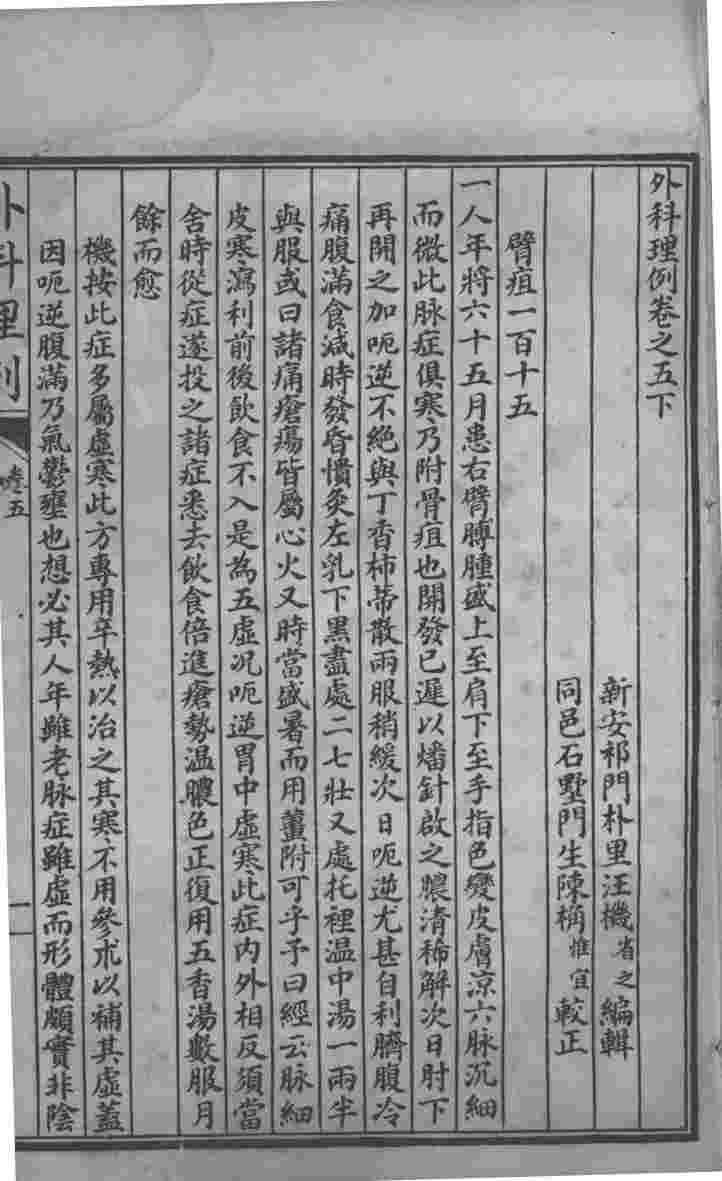 外科理例卷之五下
新安祁門朴里汪機省之編輯
同邑石墅門生陳桷惟宜較正
臂疽一百十五
一人年將六十五月患右臂膊腫盛上至肩下至手指色變皮膚凉六脉沉細
而微此脉症俱寒乃附骨疽也開發已遲以燔針啟之膿清稀解次日肘下
再開之加呃逆不絶與丁香柿蒂散兩服稍緩次日呃逆尤甚自利臍腹冷
痛腹滿食減時發昏憒灸左乳下黑盡處二七壯又處托裡温中湯一兩半
與服或曰諸痛瘡瘍皆屬心火又時當盛暑而用薑附可乎予曰經云脉細
皮寒瀉利前後飲食不入是為五虛况呃逆胃中虛寒此症内外相反須當
舍時從症遂投之諸症悉去飲食倍進瘡勢温膿色正復用五香湯數服月
餘而愈
機按此症多屬虛寒此方專用辛熱以治之其寒不用參朮以補其虛蓋
因呃逆腹滿乃氣鬱壅也想必其人年雖老脉症雖虛而形體頗實非陰
外科理例
卷五
一